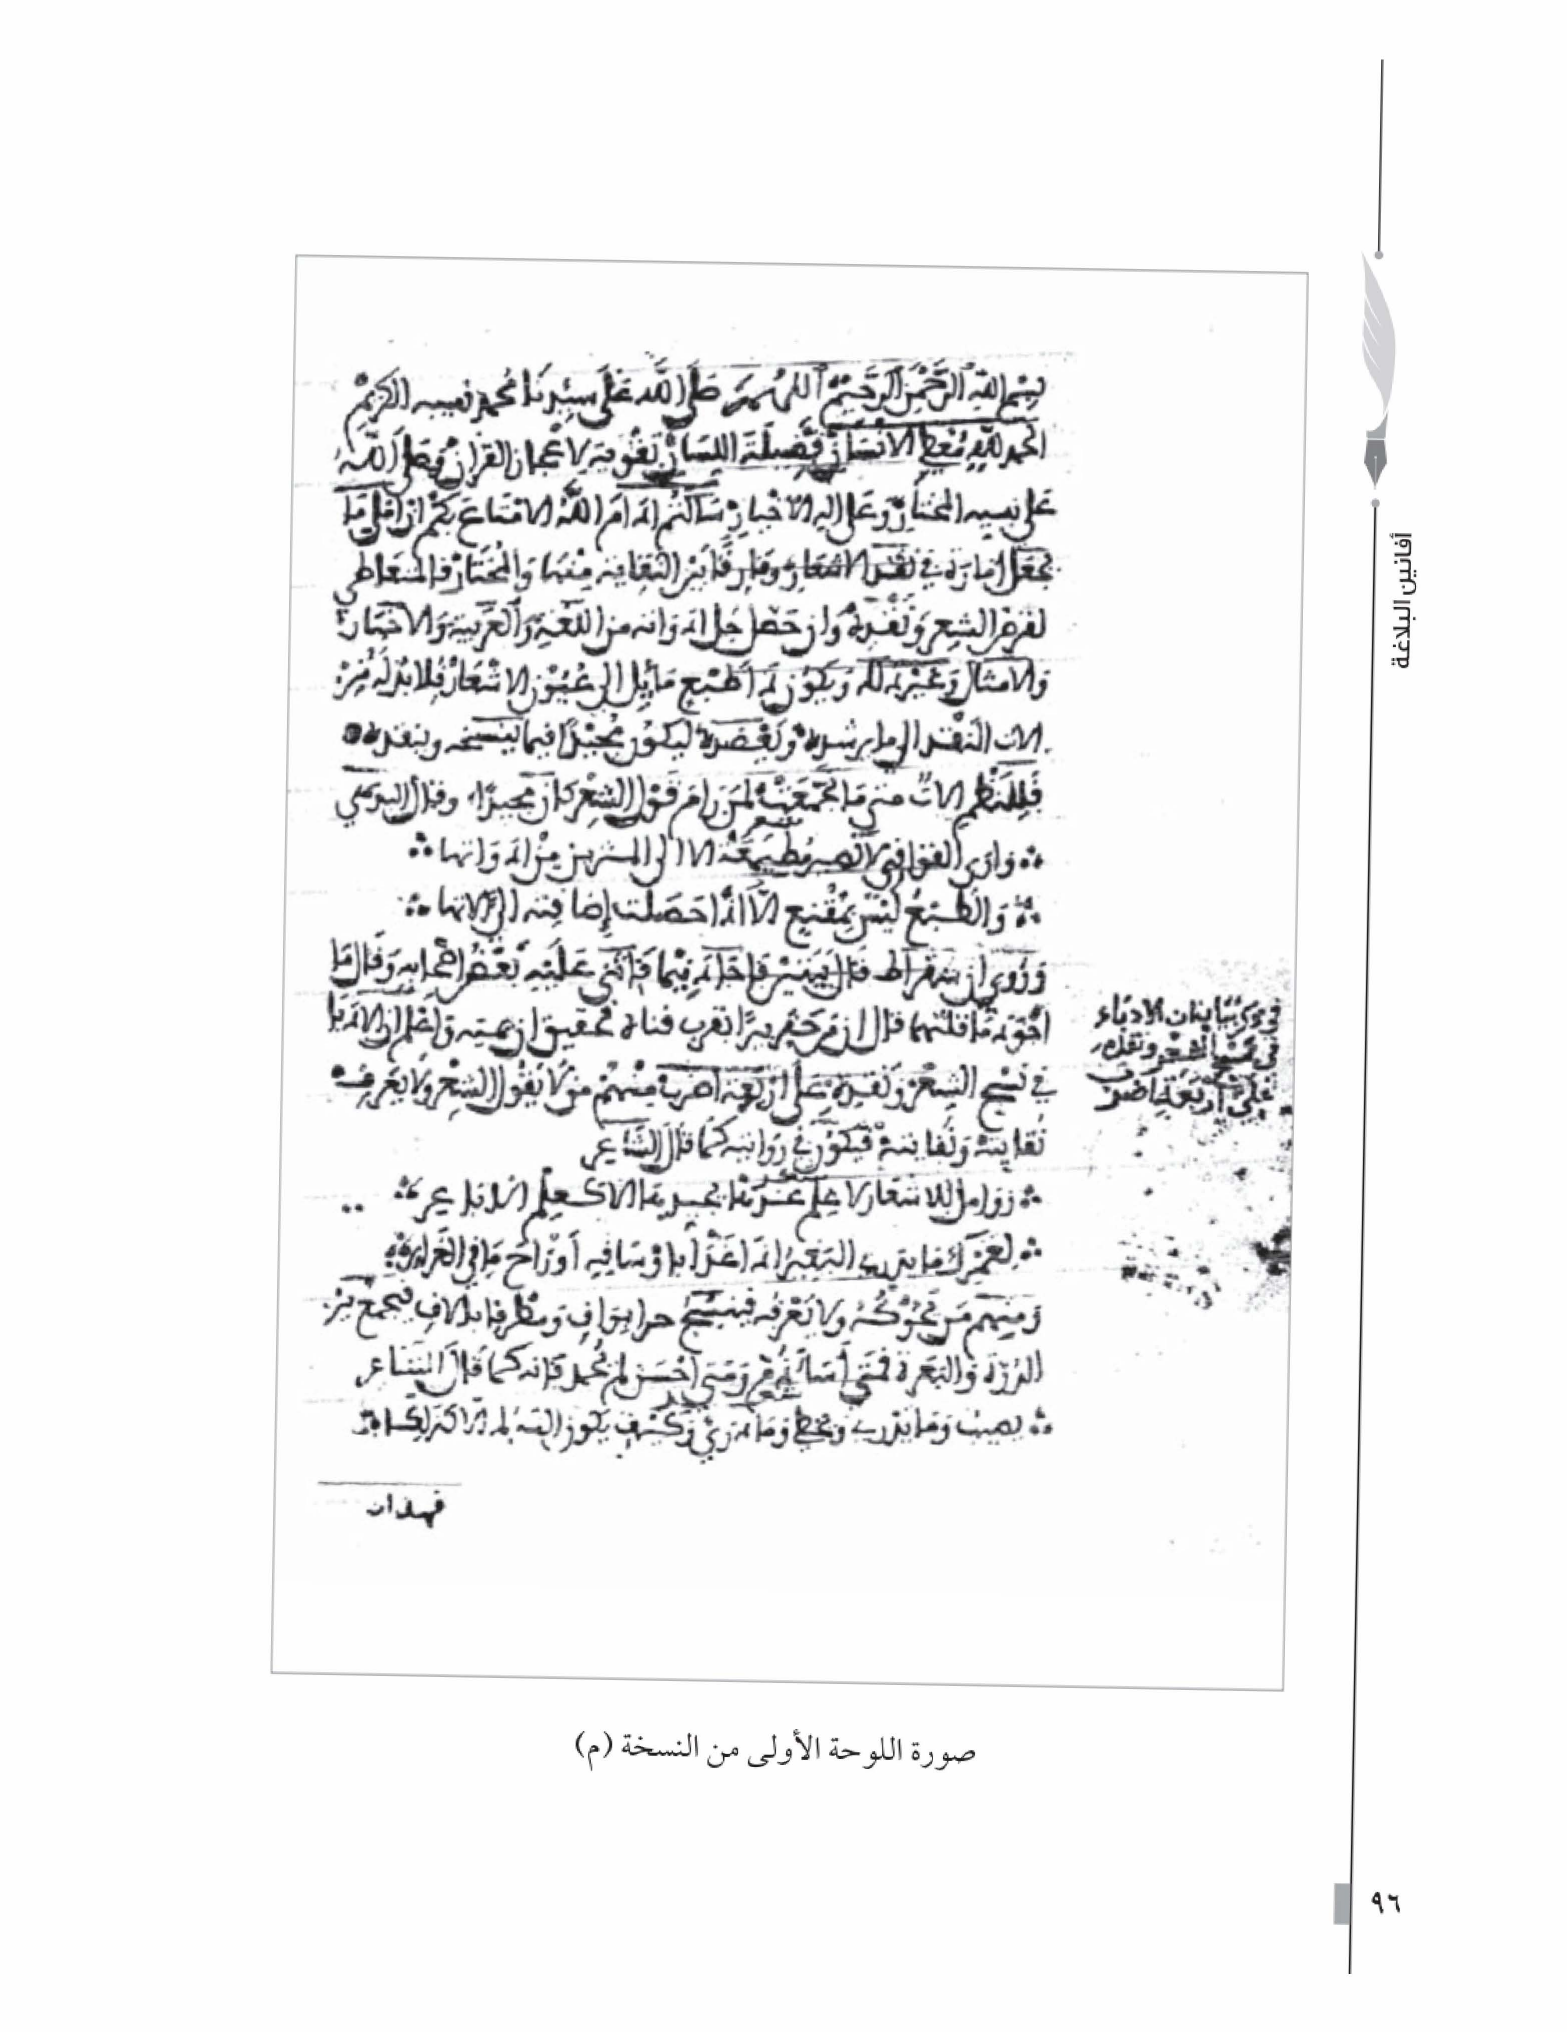 أفانين البلاغة
بسم الله الرحمن الرحيم اللهم صل الله على سيدنا محمد نبيه الكريم
الحمد لله معطي الانسان فضيلة اللسان تقوية لاعجاز القران وصلى الله
على نبيه المختار وعلى اله الاخيار سالتم ادام الله الامتاع بكم ان املي ما
نجعل امارة في نقد الاشعار وفارقا بين النفاية منها والمختار فالمتعاطي
لقرض الشعر ونقده وان حصل جل ادواته من اللغة والعربية والاخبار
والامثال وغير ذلك ويكون له طبع مائل الى عيون الاشعار فلا بد له من
الات النقد الى ما يرشده ويعضده ليكون مجيدا فيما ينسجه وينقده
فللنظم الات متى ما تجمعت لمن رام قول الشعر كان مجيدا وقال
شعر
وارى القوافي لا تصير مطيعة الا الى المثرين من ادواتها
والطبع ليس بمقنع الا اذا حصلت اضافته الى الاتها
وروي ان سقراط قال بيتين فاجاد فيهما فاثنى عليه بعض اصحابه وقال ما
اجود ما قلتهما قال ان
في نسج الشعر ونقده على اربعة اضرب منهم من لا يقول الشعر ولا يعرف
نقايته ونفايته فيكون في روايته كما قال الشاعر
شعر
زوامل للاشعار لا علم عندهم بجيدها الا كعلم الاباعر
لعمرك ما يدري البعير اذا غدا باوساقه او راح ما في الغرائر
ومنهم من يحوكه ولا يعرفه فينسج بواف ومطرفا بالاف فيجمع بين
الدرة والبعرة فمتى اساء لم يذم ومتى احسن لم يحمد فانه كما قال الشاعر
شعر
يصيب وما يدري ويخطي وما درى وكيف يكون الا كذلكا
فهذان
في ذكر
في نسج الشعر ونقده
على اربعة اضرب
صورة اللوحة الأولى من النسخة (م)
٩٦